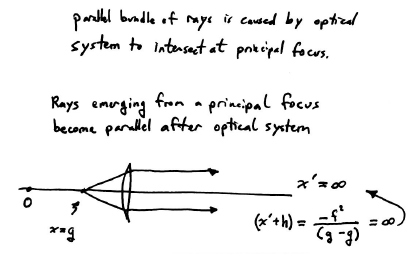 parallel bundle of rays is caused by optical
system to intersect at principal focus.
Rays emerging from a principal focus
become parallel after optical system
x' = ∞
0
x=g
(x'+h) = -f²/(g-g) = ∞